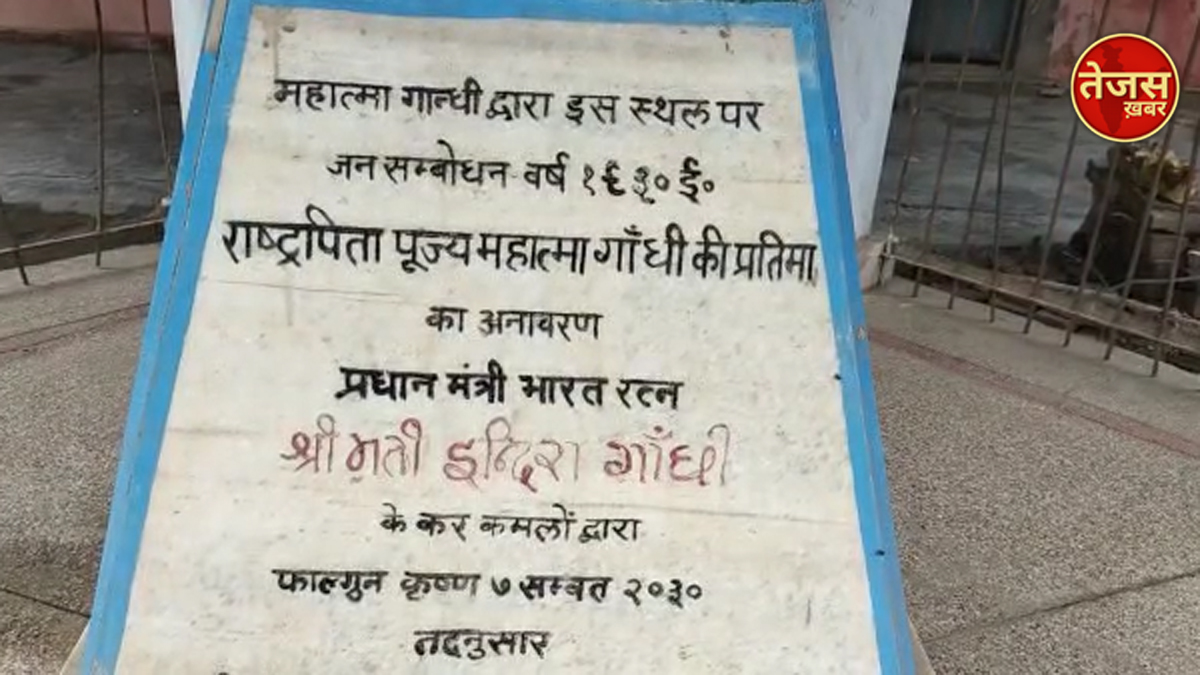 महात्मा गान्धी द्वारा इस स्थल पर
जन सम्बोधन वर्ष १९३० ई०
राष्ट्रपिता पूज्य महात्मा गाँधी की प्रतिमा
का अनावरण
प्रधान मंत्री भारत रत्न
श्रीमती इन्दिरा गाँधी
के कर कमलों द्वारा
फाल्गुन कृष्ण ७ सम्वत २०३०
तदनुसार
तेजस
ख़बर